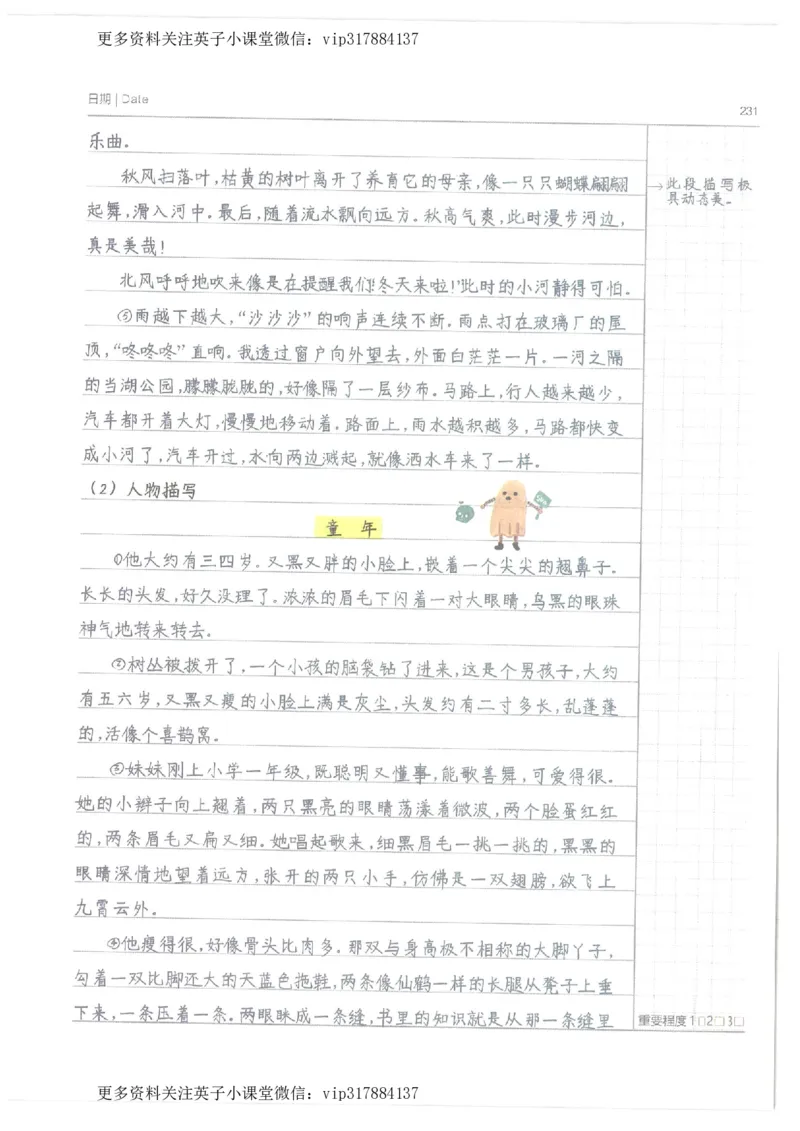 更多资料关注英子小课堂微信：vip317884137
日期 | Date
231
乐曲。
秋风扫落叶,枯黄的树叶离开了养育它的母亲,像一只只蝴蝶翩翩
→此段描写极
具动态美。
起舞,滑入河中。最后,随着流水飘向远方。秋高气爽,此时漫步河边,
真是美哉!
北风呼呼地吹来像是在提醒我们:“冬天来啦!”此时的小河静得可怕。
⑤雨越下越大,“沙沙沙”的响声连续不断。雨点打在玻璃厂的屋
顶,“咚咚咚”直响。我透过窗户向外望去,外面白茫茫一片。一河之隔
的当湖公园,朦朦胧胧的,好像隔了一层纱布。马路上,行人越来越少,
汽车都开着大灯,慢慢地移动着。路面上,雨水越积越多,马路都快变
成小河了,汽车开过,水向两边溅起,就像洒水车来了一样。
(2)人物描写
童 年
①他大约有三四岁。又黑又胖的小脸上,嵌着一个尖尖的翘鼻子。
长长的头发,好久没理了。浓浓的眉毛下闪着一对大眼睛,乌黑的眼珠
神气地转来转去。
②树丛被拨开了,一个小孩的脑袋钻了进来,这是个男孩子,大约
有五六岁,又黑又瘦的小脸上满是灰尘,头发约有二寸多长,乱蓬蓬
的,活像个喜鹊窝。
③妹妹刚上小学一年级,既聪明又懂事,能歌善舞,可爱得很。
她的小辫子向上翘着,两只黑亮的眼睛荡漾着微波,两个脸蛋红红
的,两条眉毛又扁又细。她唱起歌来,细黑眉毛一挑一挑的,黑黑的
眼睛深情地望着远方,张开的两只小手,仿佛是一双翅膀,欲飞上
九霄云外。
④他瘦得很,好像骨头比肉多。那双与身高极不相称的大脚丫子,
勾着一双比脚还大的天蓝色拖鞋,两条像仙鹤一样的长腿从凳子上垂
下来,一条压着一条。两眼眯成一条缝,书里的知识就是从那一条缝里
重要程度 1□2□3□
更多资料关注英子小课堂微信：vip317884137